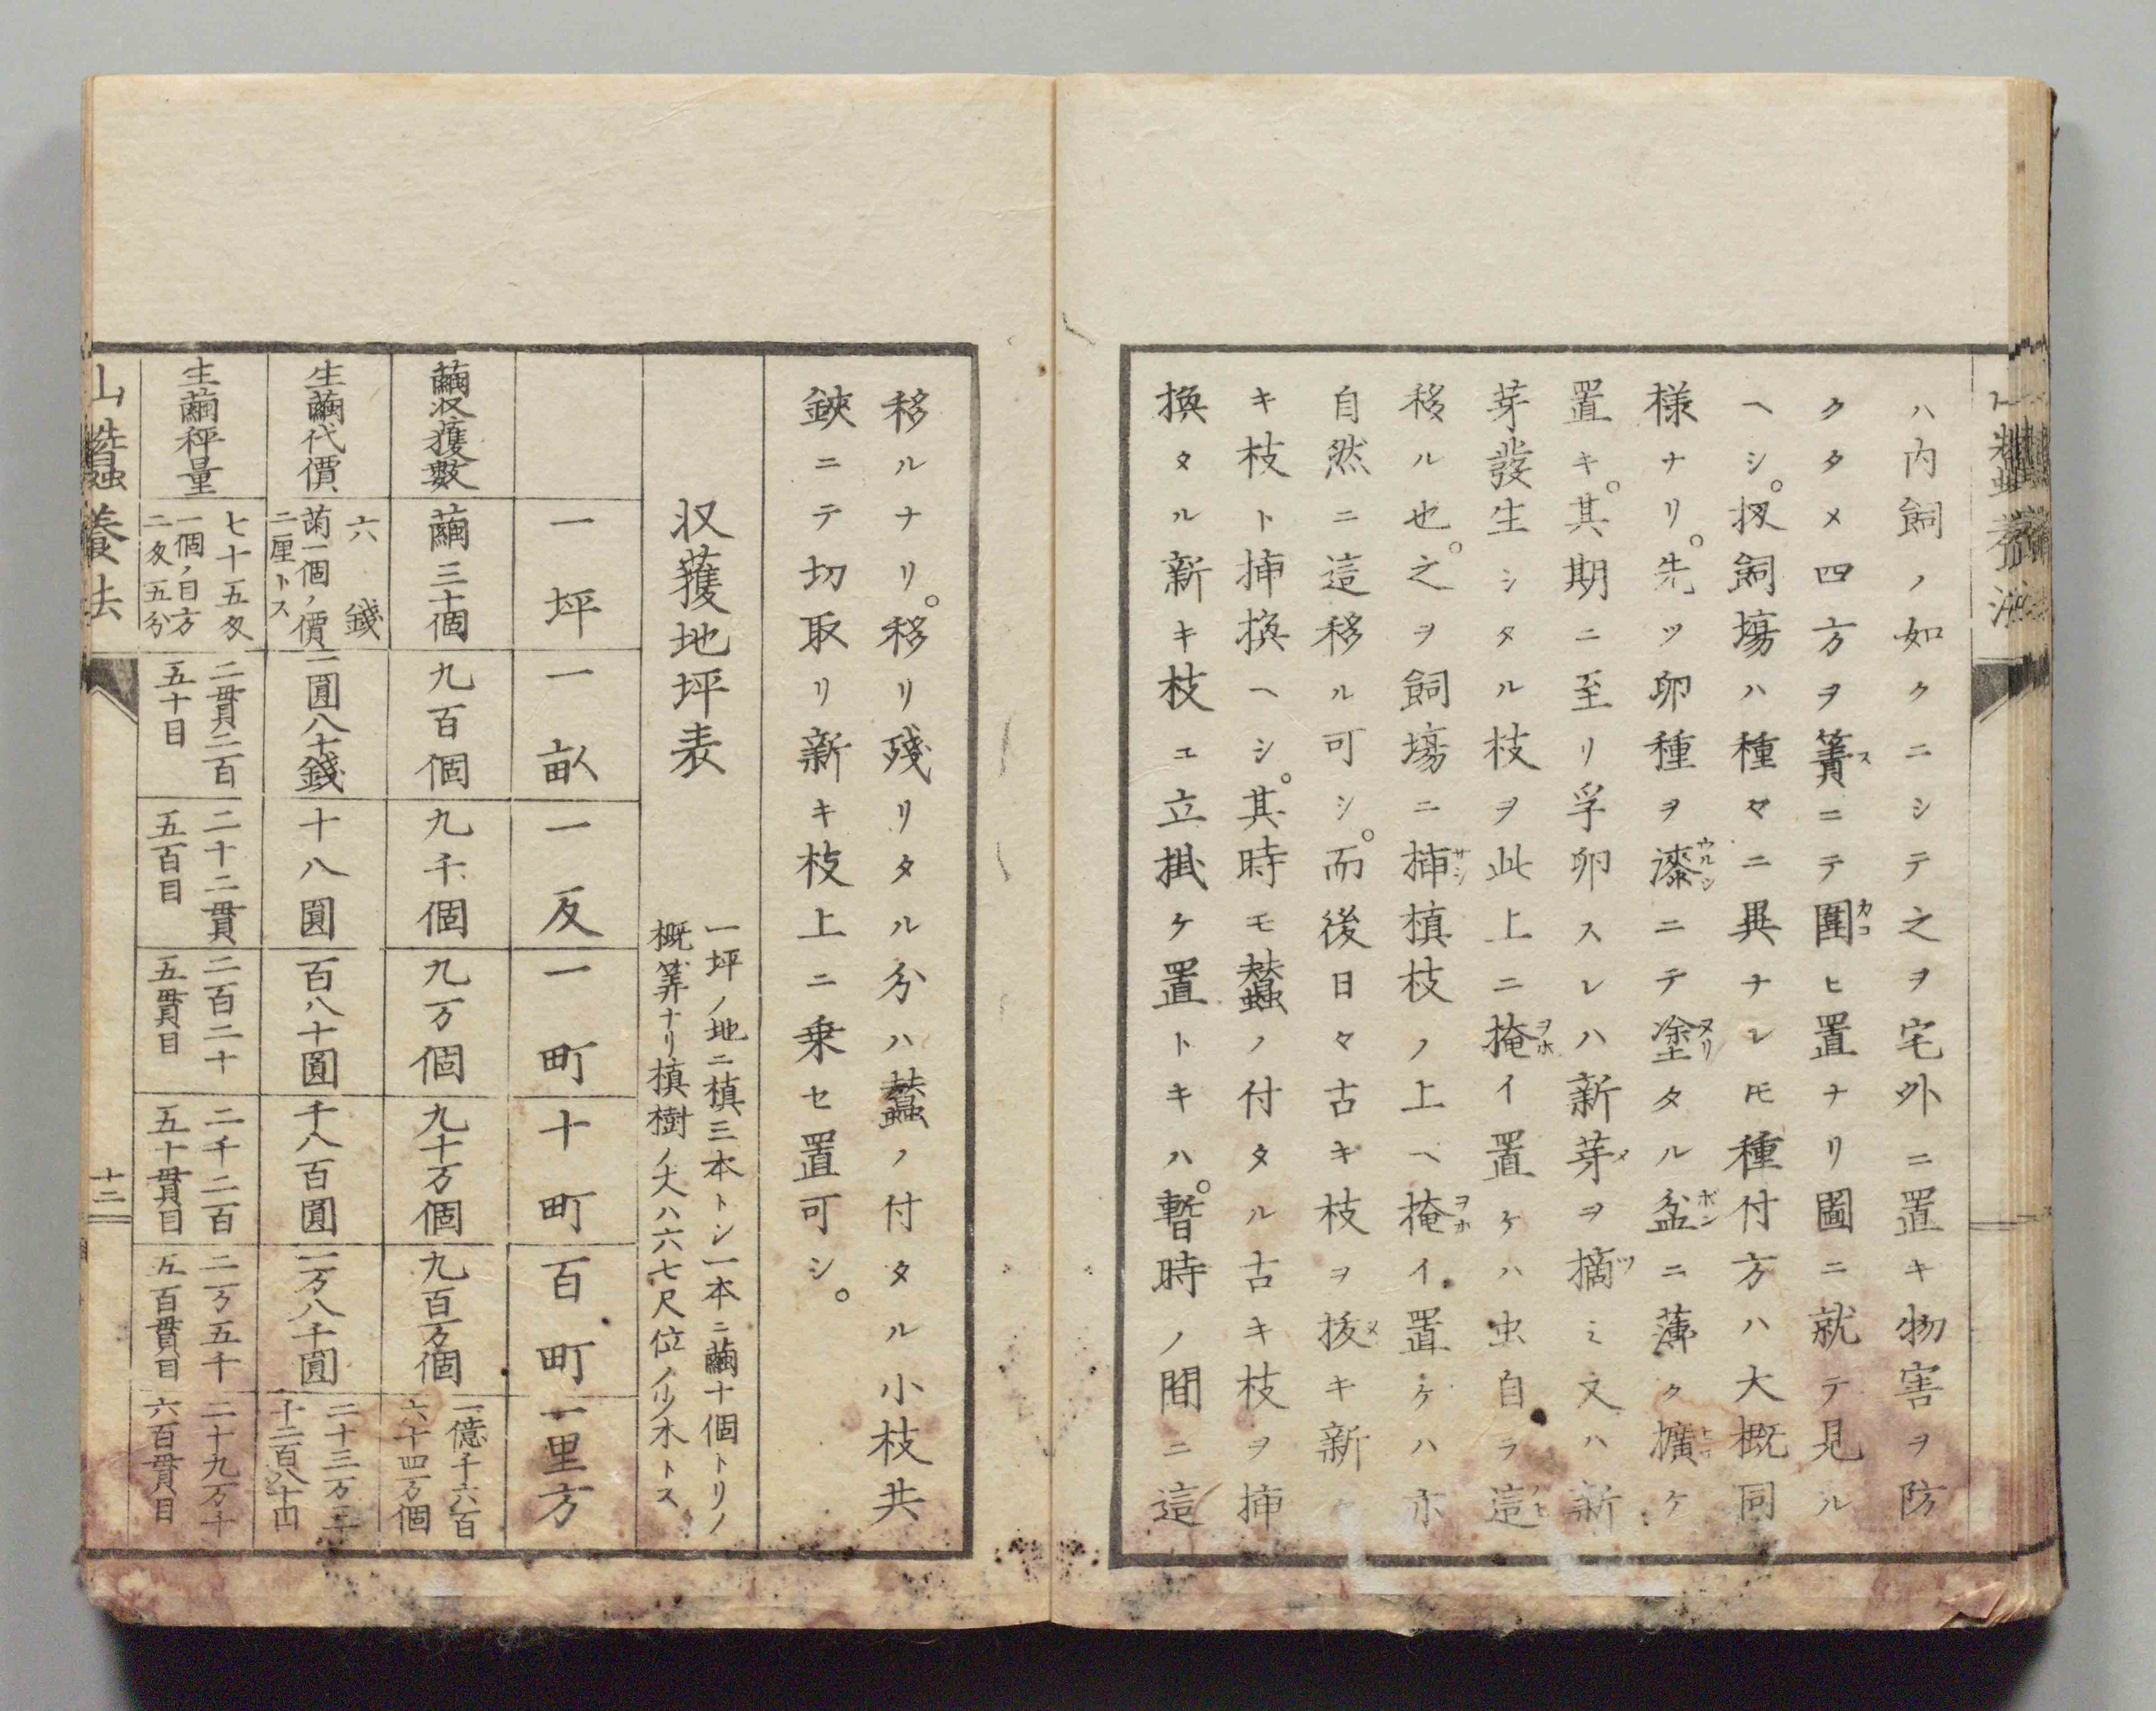 ハ内飼ノ如クニシテ之ヲ宅外ニ置キ物害ヲ防
クタメ四方ヲ簀ニテ圍ヒ置ナリ圖ニ就テ見ル
ヘシ。扱飼塲ハ種々ニ異ナレ𪜈種付方ハ大概同
様ナリ。先ツ卵種ヲ漆ニテ塗タル盆ニ薄ク擴ケ
置キ。其期ニ至リ孚卵スレハ新芽ヲ摘ミ又ハ新
芽發生シタル枝ヲ此上ニ掩イ置ケハ虫自ラ這
移ル也。之ヲ飼塲ニ挿槙枝ノ上ヘ掩イ置ケハ亦
自然ニ這移ル可シ。而後日々古キ枝ヲ拔キ新
キ枝ト挿換ヘシ。其時モ蠶ノ付タル古キ枝ヲ挿
換タル新キ枝エ立掛ケ置トキハ。暫時ノ間ニ這
移ルナリ。移リ殘リタル分ハ蠶ノ付タル小枝共
鋏ニテ切取リ新キ枝上ニ乗セ置可シ。
収蔓地坪表
一坪ノ地ニ槙三本トシ一本ニ繭十個トリノ
概筭ナリ槙樹ノ大ハ六七尺位ノ少木トス
一坪 一畝 一反 一町 十町 百町 一里方
繭収獲數 繭三十個 九百個 九千個 九万個 九十万個 九百万個 一億千六百六十四万個
生繭代價 六錢 繭一個ノ價二厘トス 一圓八十錢 十八圓 百八十圓 千八百圓 一万八千圓 二十三万三千二百八十円
生繭秤量 七十五匁 一個ノ目方二匁五分 二貫二百五十目 二十二貫五百目 二百二十五貫目 二千二百五十貫目 二万五千五百貫目 二十九万千六百貫目
山蠶養法
十二